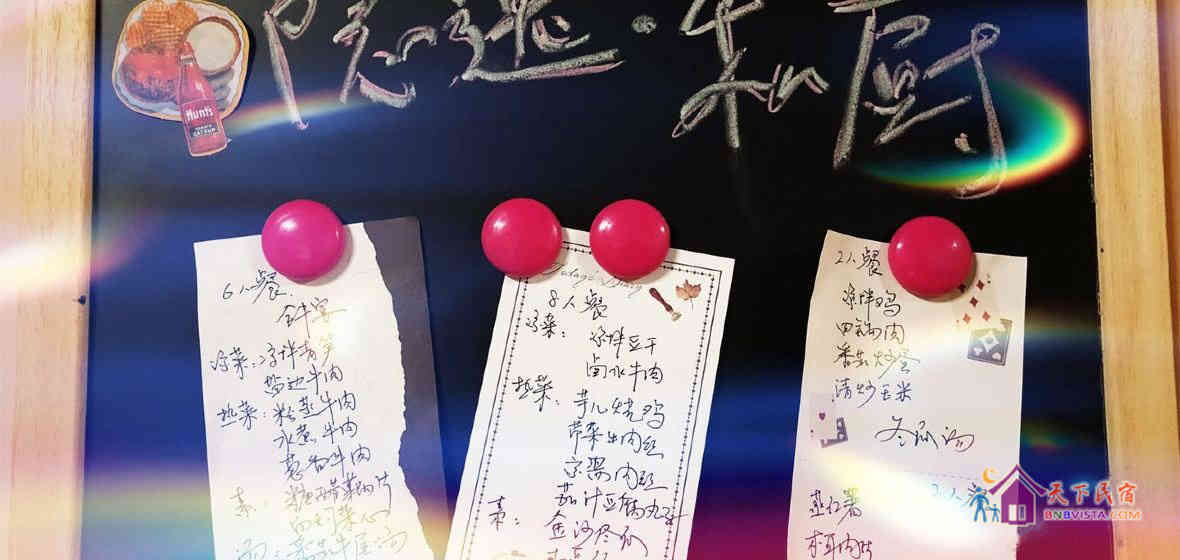 隐逸·私厨
Hunt's
6人餐
全牛宴
凉菜：凉拌青笋
盐边牛肉
热菜：粉蒸牛肉
水煮牛肉
葱香牛肉
素：
汤：番茄牛尾汤
8人餐
凉菜：
凉拌豆干
卤水牛肉
热菜：
芋儿烧鸡
芹菜牛肉丝
京酱肉丝
茄汁豆腐丸子
素：
2人餐
凉拌鸡
回锅肉
香菇炒蛋
清炒玉米
冬瓜汤
蒸红薯
木耳肉片
天下民宿
BNBVISTA.COM